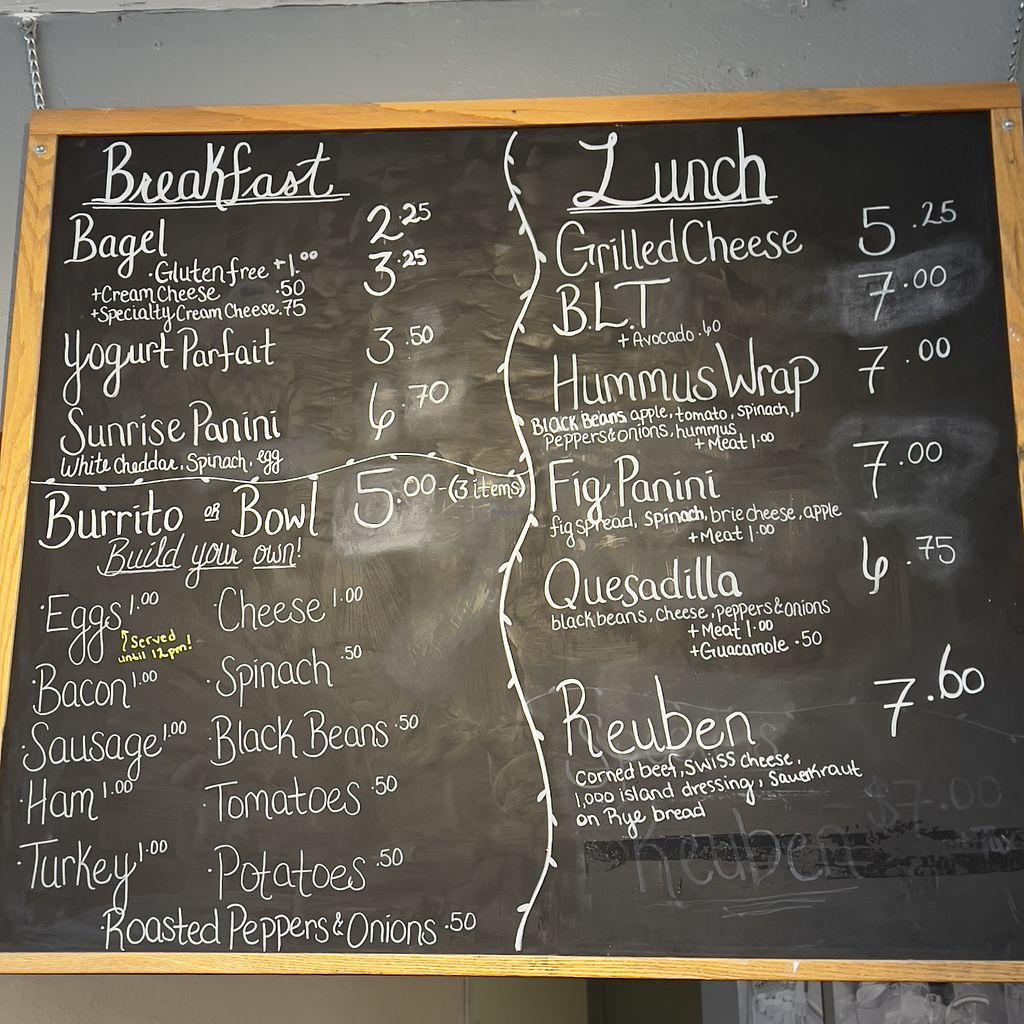 Breakfast
Bagel 2.25
·Gluten free +1.00 3.25
+Cream Cheese .50
+Specialty Cream Cheese .75
Yogurt Parfait 3.50
Sunrise Panini 6.70
White Cheddar, Spinach, egg
Burrito OR Bowl 5.00-(3 items)
Build your own!
·Eggs 1.00 ·Cheese 1.00
↑Served
until 12pm!
·Bacon 1.00 ·Spinach .50
·Sausage 1.00 ·Black Beans .50
·Ham 1.00 ·Tomatoes .50
·Turkey 1.00 ·Potatoes .50
·Roasted Peppers & Onions .50
Lunch
Grilled Cheese 5.25
B.L.T 7.00
+ Avocado .60
Hummus Wrap 7.00
Black Beans, apple, tomato, spinach,
Peppers & onions, hummus
+ Meat 1.00
Fig Panini 7.00
fig spread, spinach, brie cheese, apple
+Meat 1.00
Quesadilla 6.75
black beans, cheese, peppers & onions
+Meat 1.00
+Guacamole .50
Reuben 7.60
corned beef, SWISS cheese,
1,000 island dressing, Sauerkraut
on Rye bread
$7.00
Reuben